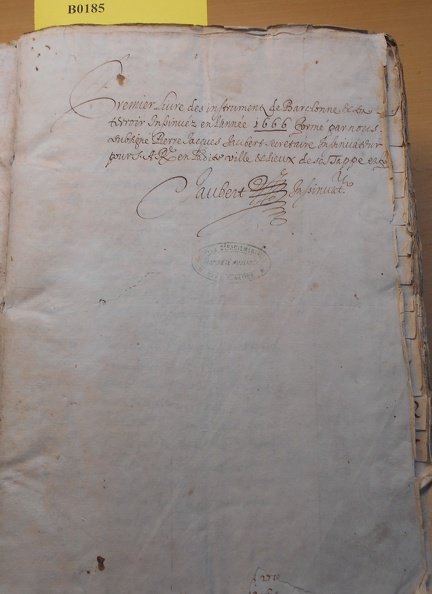 B0185
Premier Livre des instrumens de Barcelonne & sa
terroir Insinuez en l'année 1666 formé par nous
soubsigné Pierre Jacques Jaubert secretaire Insinuateur
pour S. A. R. en ladite ville & lieux de sa Tappe
Jaubert Insinuatr.